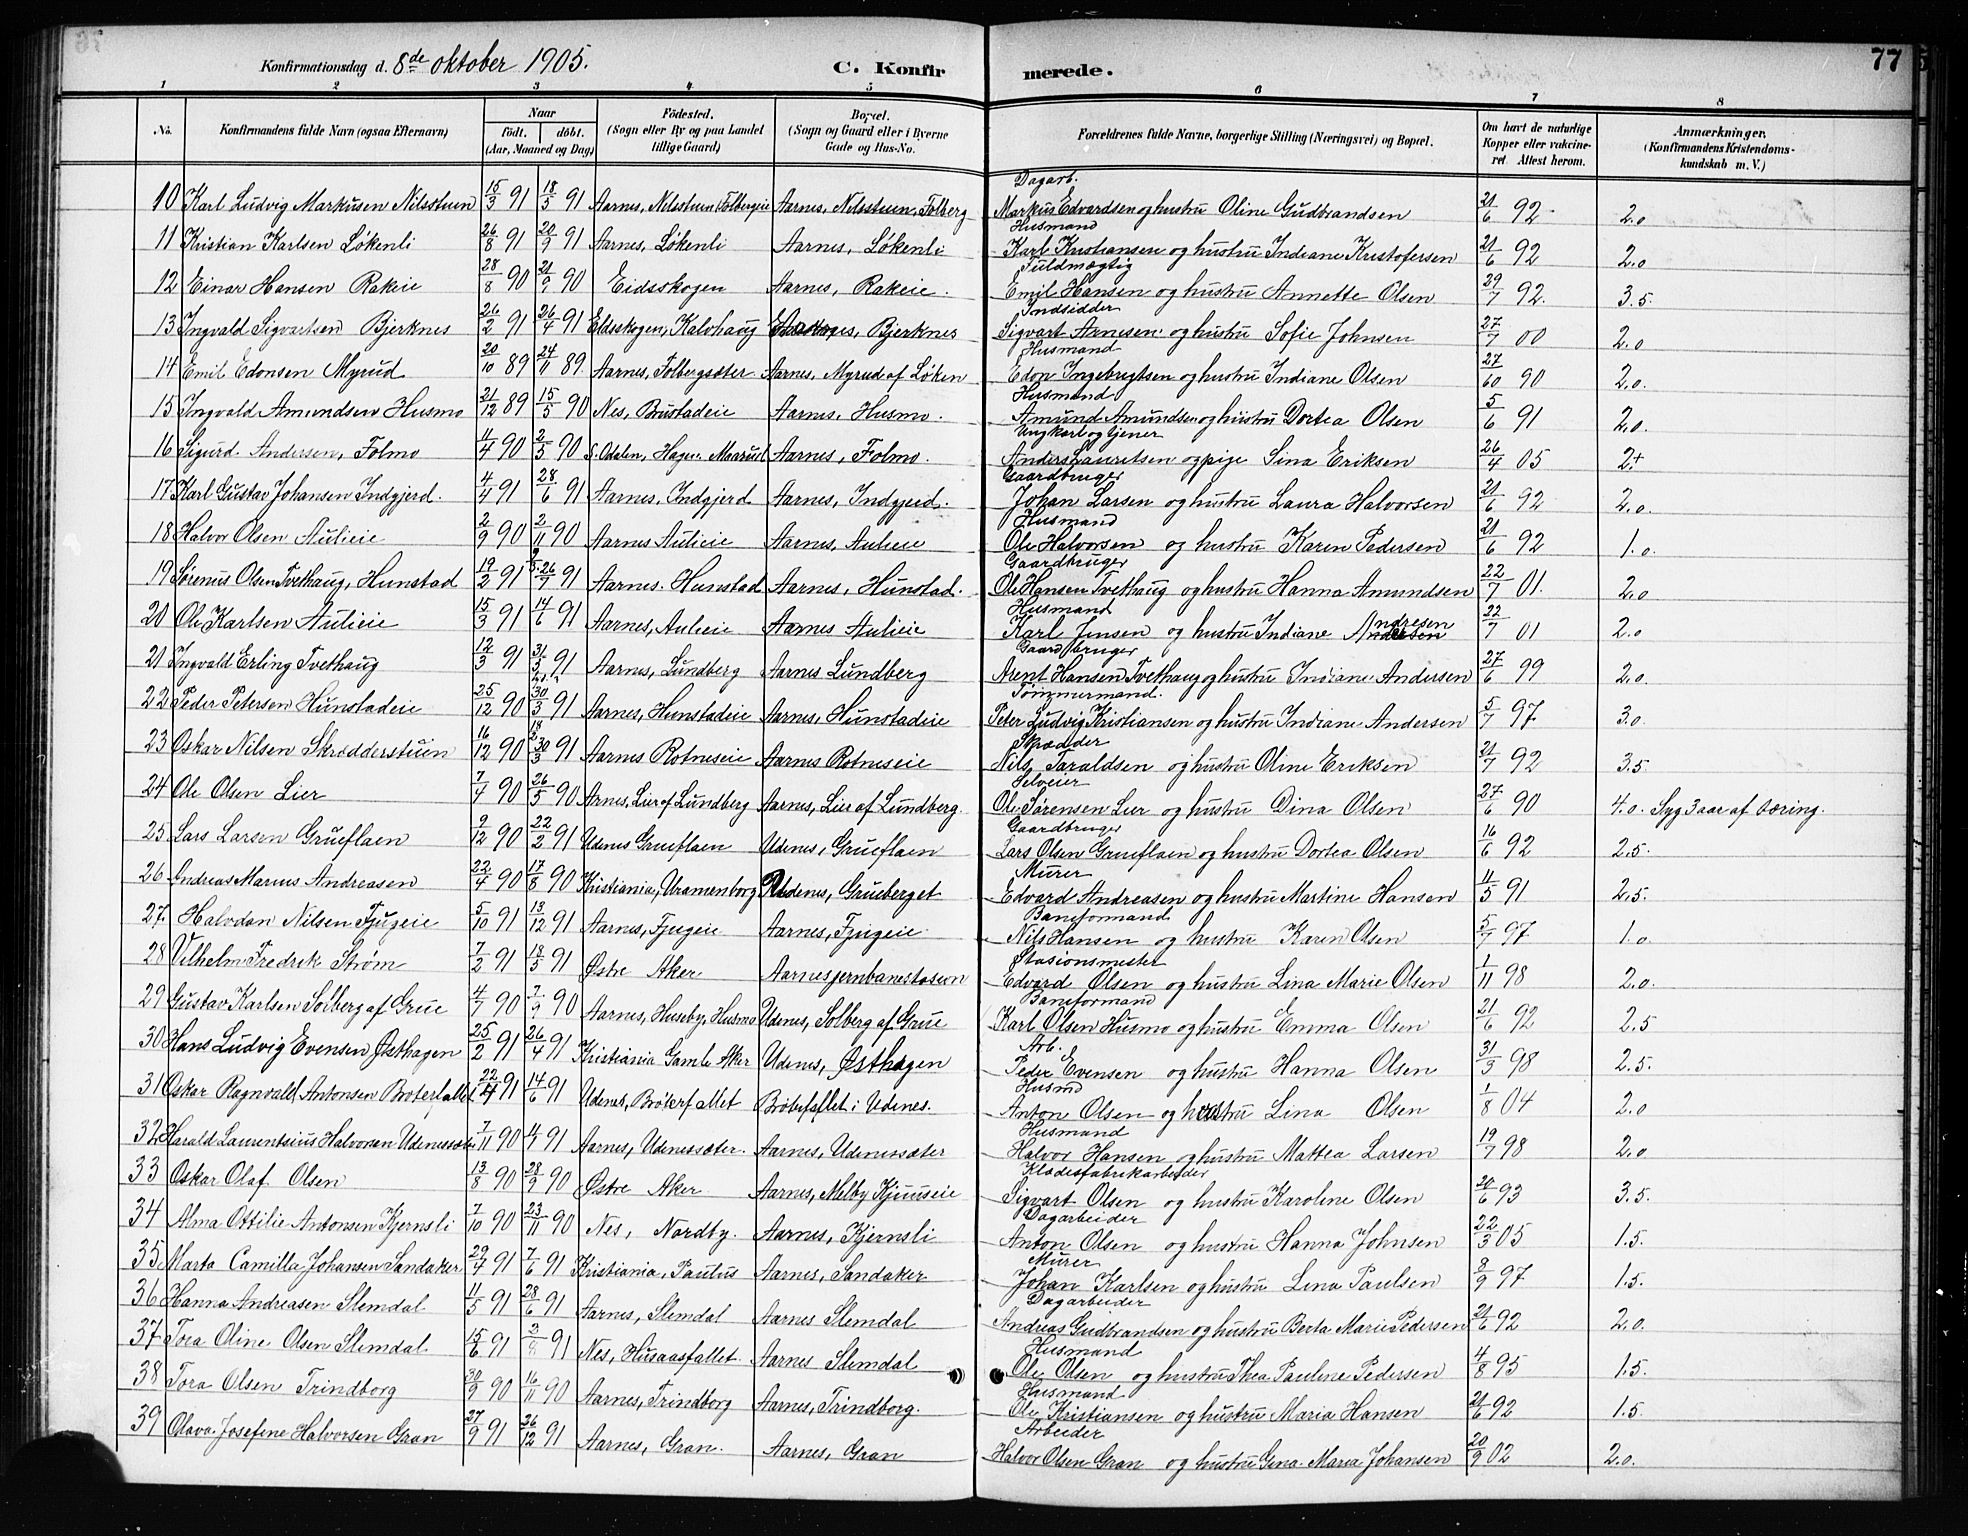 Konfirmationsdag d. 8de oktober 1905.
C. Konfirmerede.
77
1 2 3 4 5 6 7 8
No.
Konfirmandens fulde Navn (ogsaa Efternavn)
Naar født. døbt. (Aar, Maaned og Dag)
Fødested. (Sogn eller By og paa Landet tillige Gaard)
Bopæl. (Sogn og Gaard eller i Byerne Gade og Hus-No.
Forældrenes fulde Navne, borgerlige Stilling (Næringsvei) og Bopæl.
Om havt de naturlige Kopper eller vakcineret. Attest herom.
Anmærkninger. (Konfirmandens Kristendomskundskab m. V.)
10 Karl Ludvig Markusen Nilsstuen 15/3 91 18/5 91 Aarnes, Nilsstuen, Folbergeie Aarnes, Nilsstuen, Folberg Dagarb. Markus Edvardsen og hustru Oline Gudbrandsen 21/6 92 2.0
11 Kristian Karlsen Løkenli 26/8 91 20/9 91 Aarnes, Løkenli Aarnes, Løkenli Husmand Karl Kristiansen og hustru Indiane Kristofersen 21/6 92 2.0
12 Einar Hansen Rakeie 28/8 90 21/9 90 Eidsskogen Aarnes, Rakeie. Fuldmægtig Emil Hansen og hustru Annette Olsen 29/7 92. 3.5.
13 Ingvald Sigvartsen Bjerknes 26/2 91 26/4 91 Eidsskogen, Kalvhaug Aarnes, Bjerknes Indsidder Sigvart Arnesen og hustru Sofie Johnsen 27/7 00 2.0
14 Emil Edonsen Myrud 20/10 89 24/11 89 Aarnes, Folbergsæter Aarnes, Myrud af Løken Husmand Edon Ingebrigtsen og hustru Indiane Olsen 27/60 90 2.0.
15 Ingvald Amundsen Husmo 21/12 89 15/5 90 Nes, Brustadeie Aarnes, Husmo. Husmand Amund Amundsen og hustru Dortea Olsen 5/6 91 2.0.
16 Sigurd Andersen, Folmo 11/4 90 2/5 90 S. Odalen, Hagen Maarud Aarnes, Folmo. Ungkarl og tjener Anders Lauritsen og pige Sina Eriksen 26/4 05 2+
17 Karl Gustav Johansen Indgjerd. 4/4 91 28/6 91 Aarnes, Indgjerd Aarnes, Indgjerd. Gaardbruger Johan Larsen og hustru Laura Halvorsen 21/6 92 2.0.
18 Halvor Olsen Aulieie 2/9 90 2/11 90 Aarnes Aulieie Aarnes, Aulieie Husmand Ole Halvorsen og hustru Karen Pedersen 21/6 92 1.0.
19 Sørenus Olsen Tvethaug, Hunstad 19/2 91 26/7 91 Aarnes. Hunstad Aarnes, Hunstad. Gaardbruger Ole Hansen Tvethaug og hustru Hanna Amundsen 22/7 01. 2.0
20 Ole Karlsen Aulieie 15/3 91 14/6 91 Aarnes, Aulieie Aarnes Aulieie Husmand Karl Jensen og hustru Indiane Andresen 22/7 01 2.0
21 Ingvald Erling Tvethaug 12/3 91 31/5 91 Aarnes, Lundberg Aarnes Lundberg Gaardbruger Arent Hansen Tvethaug og hustru Indiane Andersen 27/6 99 2.0.
22 Peder Petersen Hunstadeie 25/12 90 30/3 91 Aarnes, Hunstadeie Aarnes, Hunstadeie Tømmermand. Peter Ludvig Kristiansen og hustru Indiane Andersen 5/7 97. 3.0.
23 Oskar Nilsen Skrædderstuen 16/12 90 30/3 91 Aarnes Rotneseie Aarnes Rotneseie Skrædder Nils Taraldsen og hustru Oline Eriksen 21/7 92 3.5.
24 Ole Olsen Lier 7/4 90 26/5 90 Arnes, Lier af Lundberg Aarnes, Lier af Lundberg. Selveier Ole Sørensen Lier og hustru Dina Olsen 27/6 90 4.0. Syg 3 aar af tæring.
25 Lars Larsen Grueflaen 9/12 90 22/2 91 Udenes Grueflaen Udenes, Grueflaen Gaardbruger Lars Olsen Grueflaen og hustru Dortea Olsen 16/6 92 2.5.
26 Andreas Marius Andreasen 22/4 90 17/8 90 Kristiania, Uranienborg Udenes, Grueberget Murer Edvard Andreasen og hustru Martine Hansen 11/5 91 2.5.
27. Halvdan Nilsen Fjugeie 5/10 91 13/12 91 Aarnes, Fjugeie Aarnes, Fjugeie. Baneformand Nils Hansen og hustru Karen Olsen 5/7 97. 1.0.
28 Vilhelm Fredrik Strøm 7/2 91 18/5 91 Østre Aker Aarnes jernbanestasion Stasionsmester Edvard Olsen og hustru Lina Marie Olsen 1/11 98 2.0.
29 Gustav Karlsen Solberg af Grue 4/7 90 7/9 90 Aarnes, Huseby, Husmo Udenes, Solberg af Grue Baneformand Karl Olsen Husmo og hustru Emma Olsen 21/6 92 2.5
30 Hans Ludvig Evensen Østhagen 25/2 91 26/4 91 Kristiania Gamle Aker Udenes, Østhagen Arb. Peder Evensen og hustru Hanna Olsen 31/3 98 2.5.
31 Oskar Ragnvald Antonsen Broterfallet 22/4 91 14/6 91 Udenes, Bröterfallet Bröterfallet i Udenes. Husmd Anton Olsen og hustru Lina Olsen 1/8 04 2.0
32 Harald Laurentius Halvorsen Udenessæter 7/11 90 4/1 91 Aarnes, Udenessæter. Aarnes, Udenessæter Husmand Halvor Hansen og hustru Mattea Larsen 19/7 98 2.0
33 Oskar Olaf Olsen 13/8 90 28/9 90 Østre Aker Aarnes, Melby Kjuuseie Klædesfabrikarbeider Sigvart Olsen og hustru Karoline Olsen 20/6 93 3.5.
34 Alma Ottilie Antonsen Kjernsli 7/10 90 23/11 90 Nes, Nordby. Aarnes, Kjernsli Dagarbeider Anton Olsen og hustru Hanna Johnsen 22/3 05 1.5.
35 Marta Camilla Johansen Sandaker 29/4 91 7/6 91 Kristiania, Paulus Aarnes, Sandaker Murer Johan Karlsen og hustru Lina Paulsen 8/9 97 1.5.
36 Hanna Andreasen Slemdal 11/5 91 28/6 91 Aarnes, Slemdal Aarnes Slemdal Dagarbeider Andreas Gudbrandsen og hustru Berta Marie Pedersen 21/6 92 2.0.
37 Tora Oline Olsen Slemdal 15/6 91 2/8 91 Nes, Husaasfallet Aarnes Slemdal Husmand Ole Olsen og hustru Thea Pauline Pedersen 4/8 95 1.5.
38 Tora Olsen Trindborg 30/9 90 16/11 90 Aarnes, Trindborg Aarnes, Trindborg. Husmand Ole Kristiansen og hustru Maria Hansen 21/6 92 1.5.
39 Olava Josefine Halvorsen Gran 27/9 91 26/12 91 Aarnes, Gran. Aarnes, Gran Arbeider Halvor Olsen Gran og hustru Gina Maria Johansen 20/9 02 2.0.